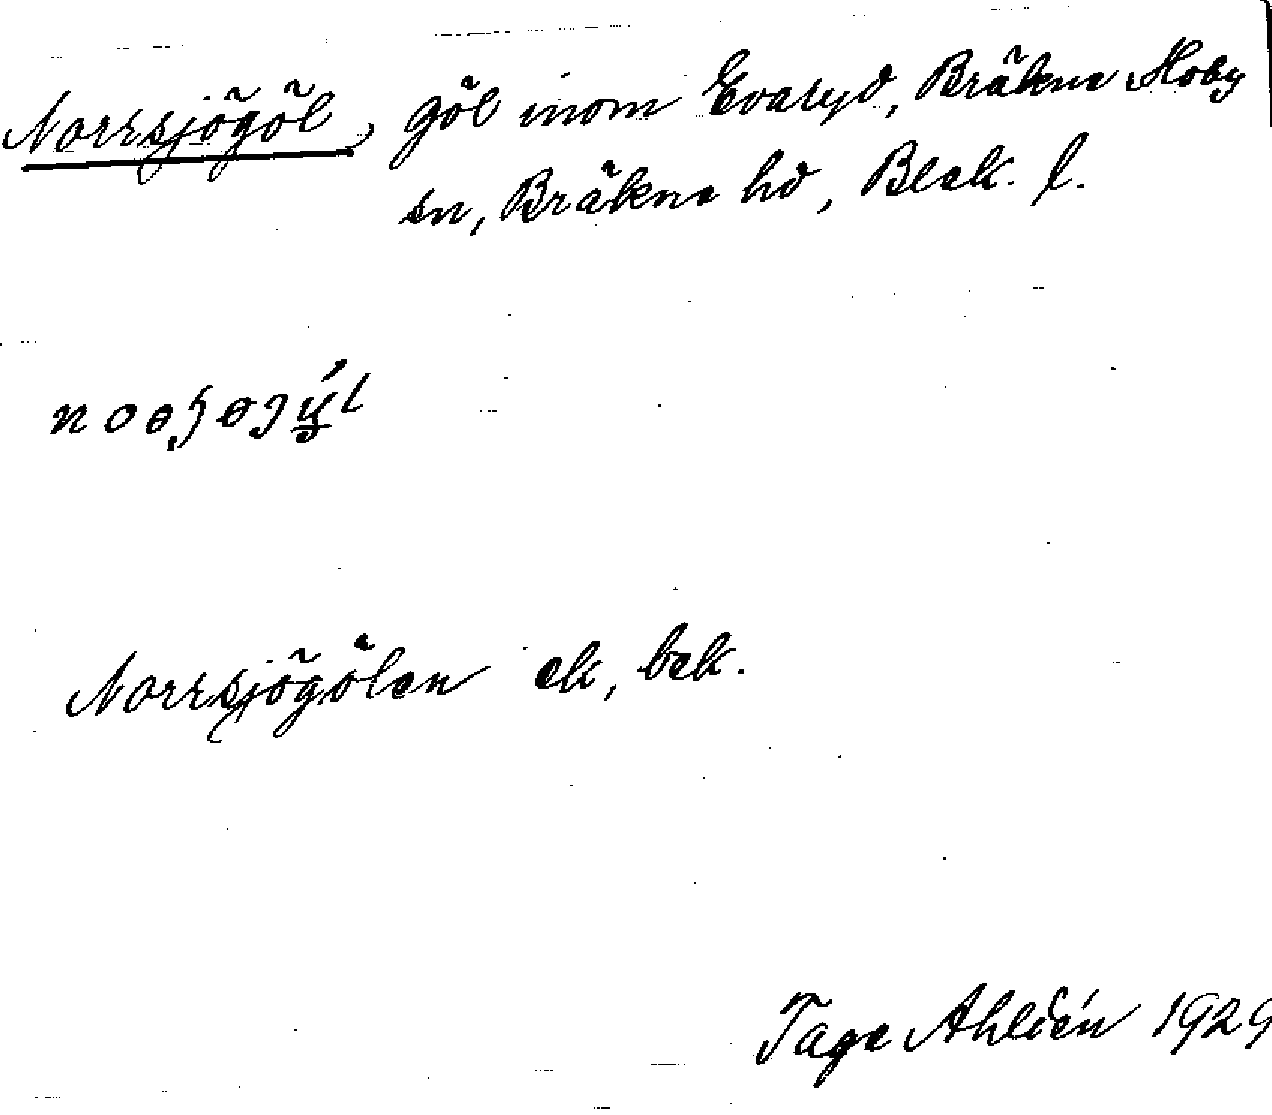 Norrsjögöl, göl inom Evaryd, Bräkne Hoby
sn, Bräkne hd, Blek. l.
Norrsjögölen ek, bek.
Tage Ahldén 1929